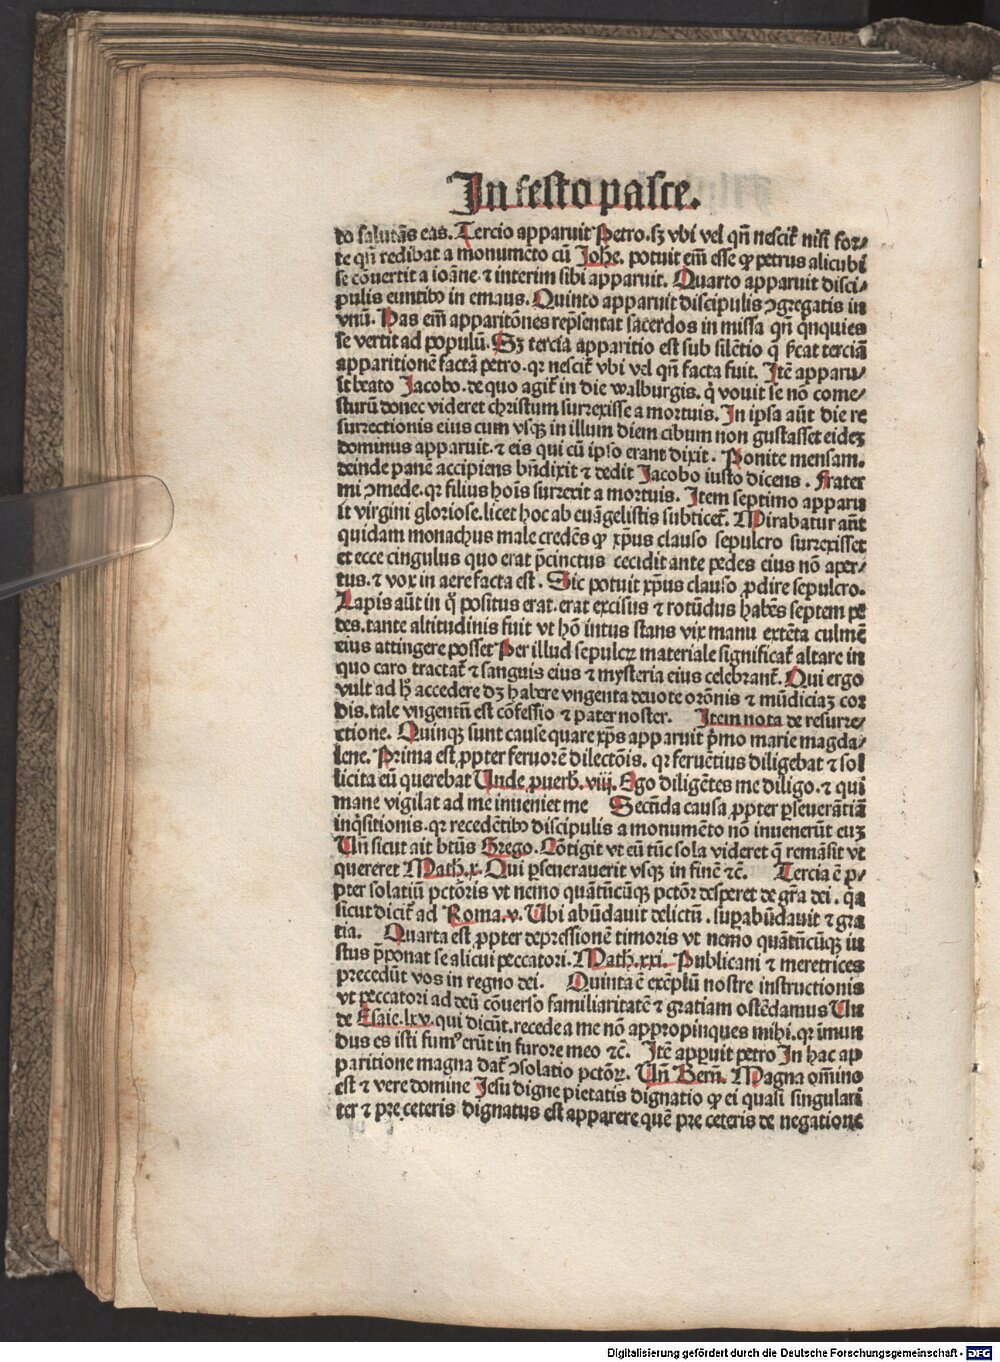 In festo pasce.
do salutās eas. Tercio apparuit Petro. sꝫ vbi vel qn̄ nescit̄ nisi for⸗
te qn̄ redibat a monumēto cū Johe. potuit em̄ esse ꝙ petrus alicubi
se cōuertit a ioāne ⁊ interim sibi apparuit. Quarto apparuit disci⸗
pulis euntibꝰ in emaus. Quinto apparuit discipulis ꝯgregatis in
vnū. Has em̄ apparitōnes rep̄sentat sacerdos in missa qn̄ qnquies
se vertit ad populū. Sꝫ tercia apparitio est sub silētio q̄ sc̄cat terciā
apparitionē factā petro. qꝛ nescit̄ vbi vel qn̄ facta fuit. Itē apparu⸗
it beato Jacobo. de quo agit̄ in die walburgis. q̇ vouit se nō come⸗
sturū donec videret christum surrexisse a mortuis. In ipsa aūt die re
surrectionis eius cum vsqꝫ in illum diem cibum non gustasset eideꝫ
dominus apparuit. ⁊ eis qui cū ipso erant dixit. Ponite mensam.
deinde panē accipiens bn̄dixit ⁊ dedit Jacobo iusto dicens. Frater
mi ꝯmede. qꝛ filius hoīs surrexit a mortuis. Item septimo apparu
it virgini gloriose. licet hoc ab euāgelistis subticet̄. Mirabatur aūt
quidam monachus male credēs ꝙ xp̄us clauso sepulcro surrexisset
et ecce cingulus quo erat p̄cinctus cecidit ante pedes eius nō aper⸗
tus. ⁊ vox in aere facta est. Sic potuit xp̄us clauso ꝓdire sepulcro.
Lapis aūt in q̊ positus erat. erat excisus ⁊ rotūdus habēs septem pe
des. tante altitudinis fuit vt hō intus stans vix manu extēta culmē
eius attingere posset Per illud sepulcꝝ materiale significat̄ altare in
quo caro tractat̄ ⁊ sanguis eius ⁊ mysteria eius celebrant̄. Qui ergo
vult ad h̊ accedere dꝫ habere vngenta deuote orōnis ⁊ mūdiciaꝫ cor
dis. tale vngentū est cōfessio ⁊ pater noster. Item nota de resurre⸗
ctione. Quinqꝫ sunt cause quare xp̄s apparuit p̄mo marie magda⸗
lene. Prima est ꝓpter feruorē dilectōis. qꝛ feruētius diligebat ⁊ sol
licita eū querebat Unde ꝓuerb. viij. Ego diligētes me diligo. ⁊ qui
mane vigilat ad me inueniet me Secūda causa ꝓpter ꝑseuerātiā
inq̇sitionis. qꝛ recedētibꝰ discipulis a monumēto nō inuenerūt euꝫ
Un̄ sicut ait btūs Grego. Cōtigit vt eū tūc sola videret q̄ remāsit vt
quereret Math. x. Qui ꝑseuerauerit vsqꝫ in finē ⁊c̄. Tercia ē ꝓ⸗
pter solatiū pctōris vt nemo quātūcūqꝫ pctōr desperet de gr̄a dei. qa
sicut dicit̄ ad Roma. v. Ubi abūdauit delictū. suꝑabūdauit ⁊ gra
tia. Quarta est ꝓpter depressionē timoris vt nemo quātūcūqꝫ iu
stus p̄ponat se alicui peccatori. Math. xxi. Publicani ⁊ meretrices
precedūt vos in regno dei. Quinta ē exēplū nostre instructionis
vt peccatori ad deū cōuerso familiaritatē ⁊ gratiam ostēdamus Un
de Esaie. lxv. qui dicūt. recede a me nō appropinques mihi. qꝛ imun
dus es isti fumꝰ erūt in furore meo ⁊c̄. Itē apꝑuit petro In hac ap
paritione magna dat̄ ꝯsolatio pctōꝝ. Un̄ Bern̄. Magna om̄ino
est ⁊ vere domine Jesu digne pietatis dignatio ꝙ ei quasi singulari
ter ⁊ pre ceteris dignatus est apparere quē pre ceteris de negatione
Digitalisierung gefördert durch die Deutsche Forschungsgemeinschaft - DFG